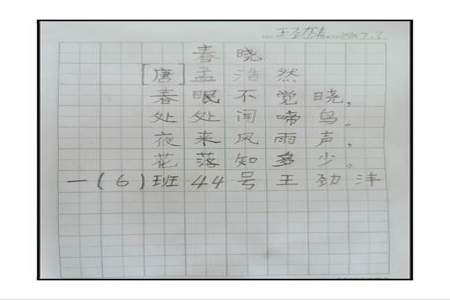 春晓
[唐]孟浩然
春眠不觉晓,
处处闻啼鸟。
夜来风雨声,
花落知多少。
一(6)班44号王劲沣